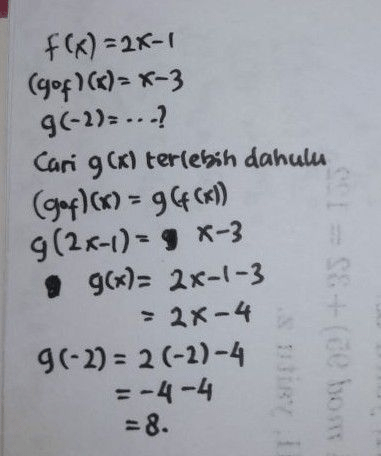 f(x) = 2x-1
(gof)(x) = x-3
g(-2) = ...?
Cari g(x) terlebih dahulu
(gof)(x) = g(f(x))
g(2x-1) = x-3
g(x) = 2x-1-3
= 2x-4
g(-2) = 2(-2)-4
= -4-4
= 8.